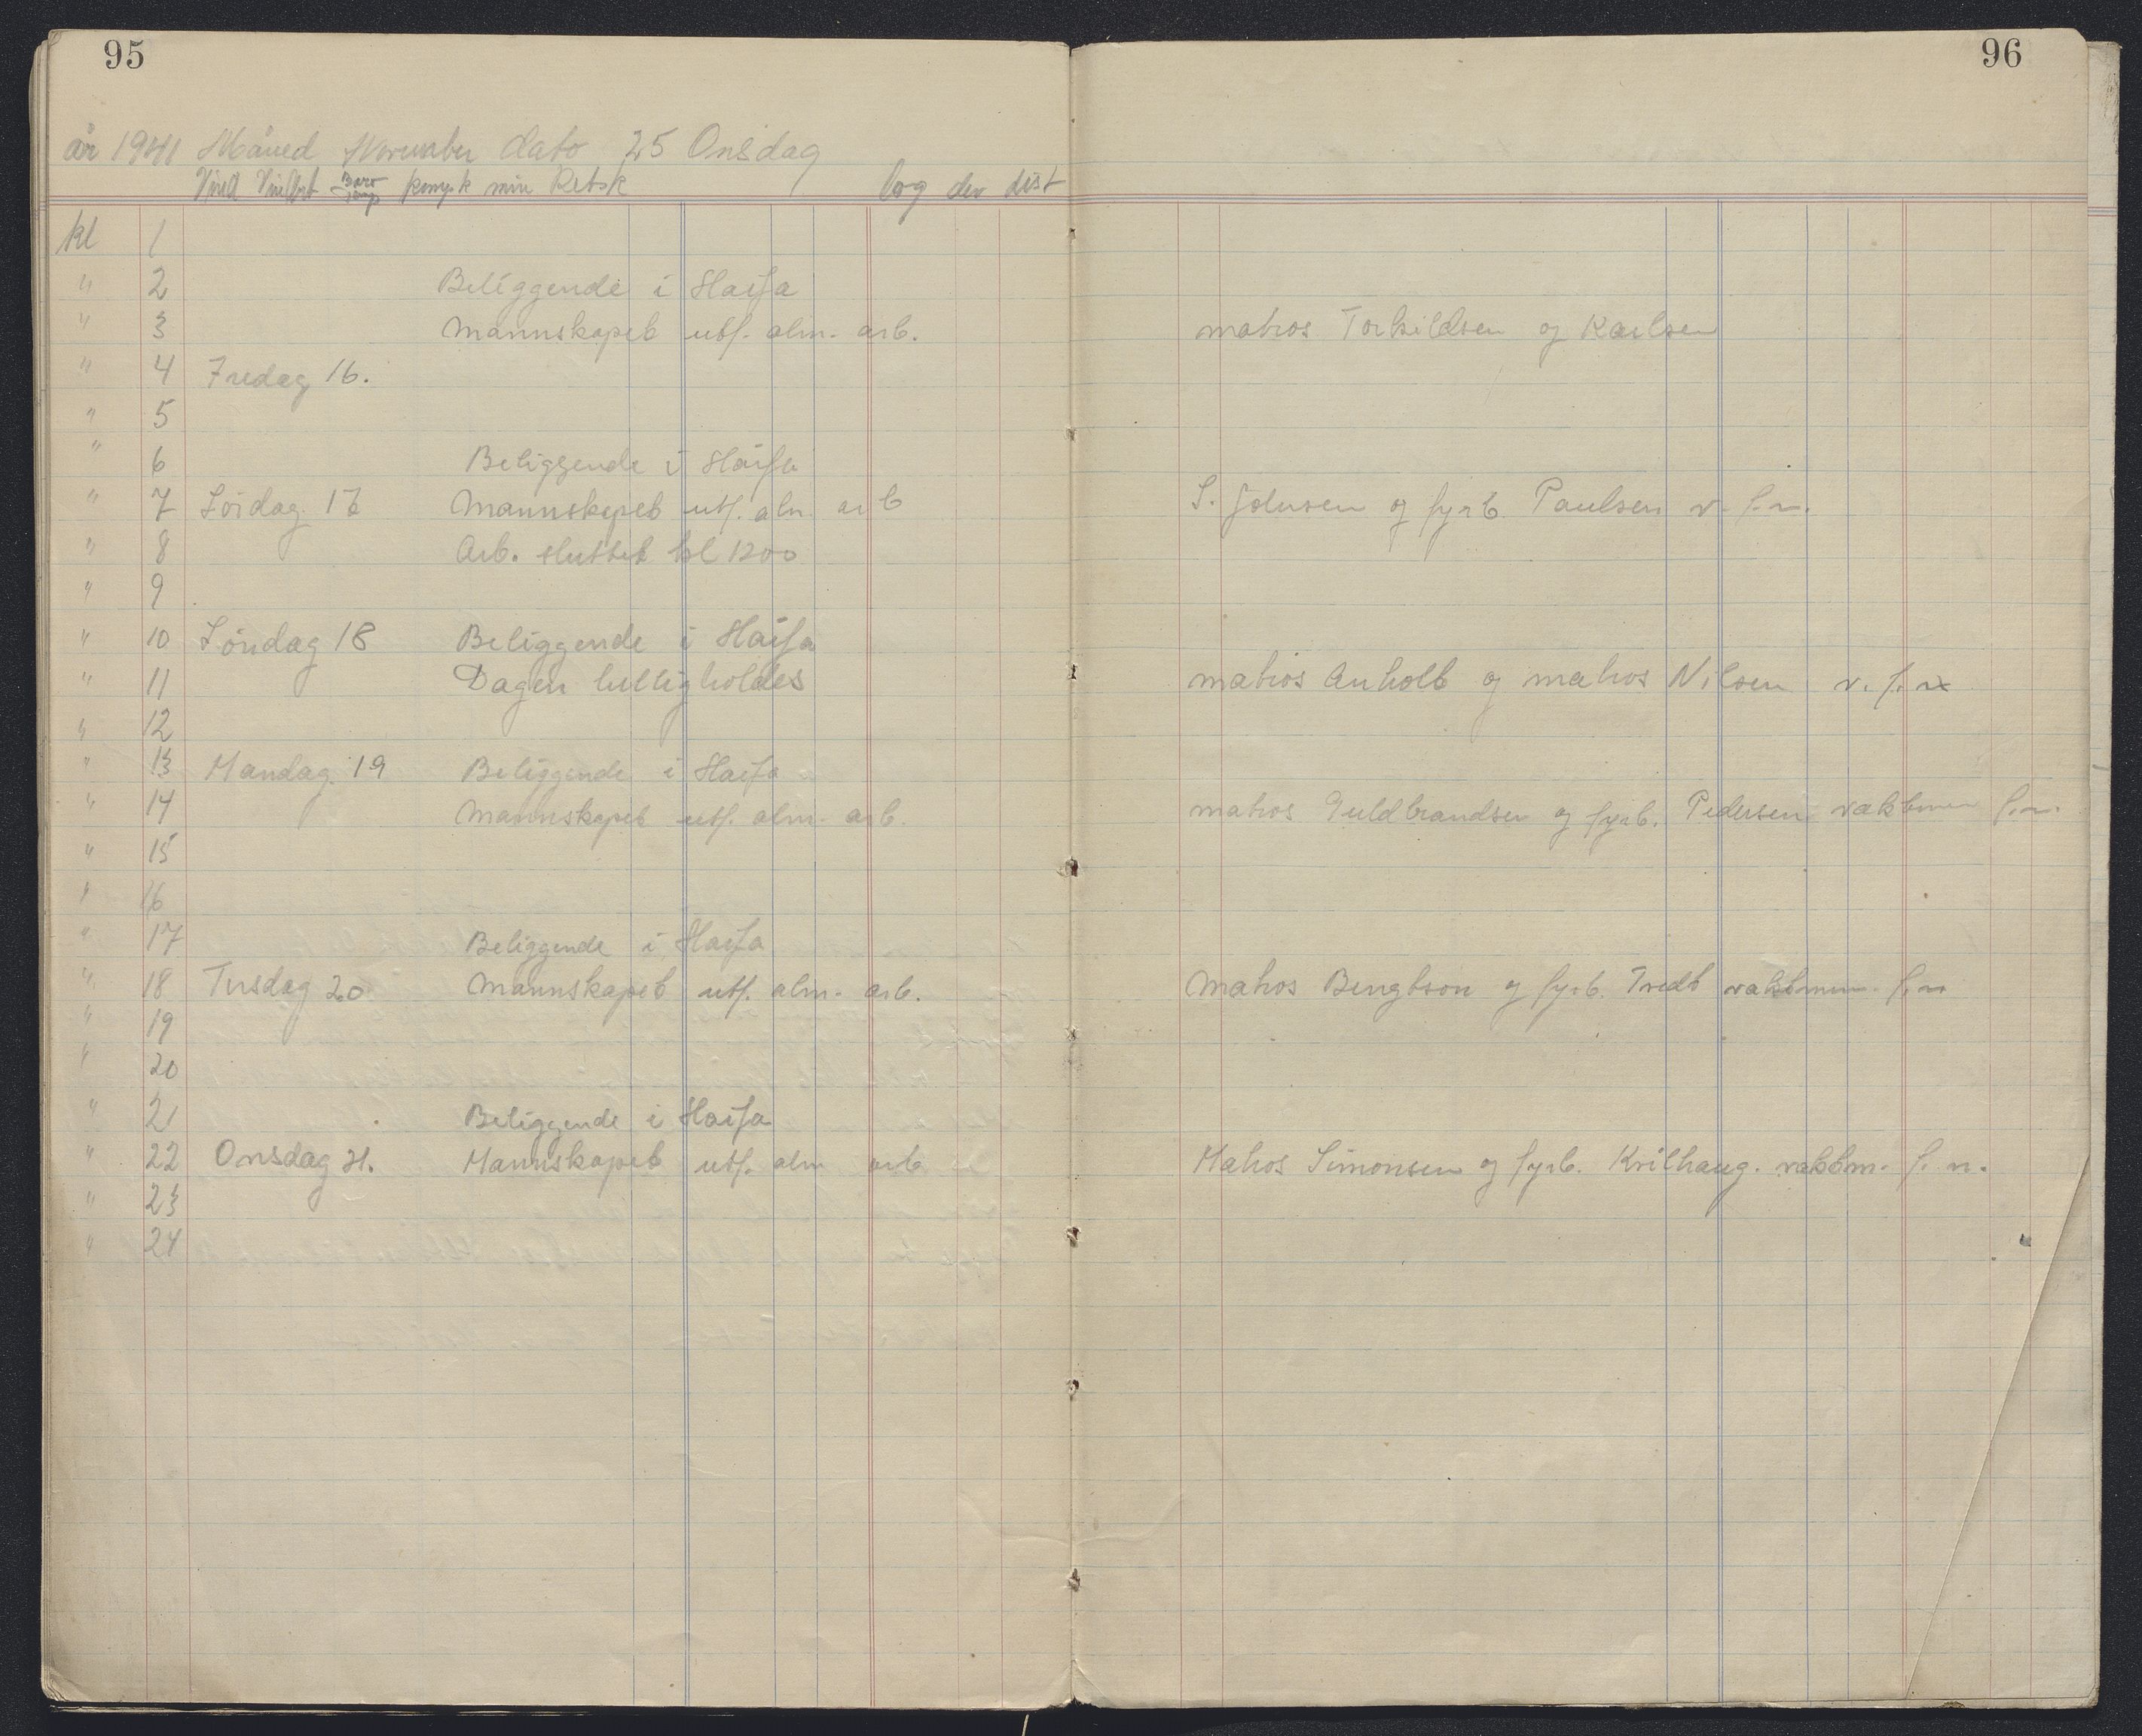 95
96
år 1941 Måned November dato 25 Onsdag
Vind Baro Temp komp k min Retsk log dev dist
kl 1
" 2 Beliggende i Haifa
" 3 Mannskapet utf. alm. arb. matros Torkildsen og Karlsen
" 4 Fredag 16.
" 5
" 6 Beliggende i Haifa
" 7 Lördag 17 Mannskapet utf. alm. arb S. Johnsen og fyrb. Paulsen v. f. n.
" 8 Arb. sluttet kl 1200
" 9
" 10 Söndag 18 Beliggende i Haifa
" 11 Dagen helligholdes matros Anholt og matros Nilsen v. f. n
" 12
" 13 Mandag 19 Beliggende i Haifa
" 14 Mannskapet utf. alm. arb. matros Guldbrandsen og fyrb. Pedersen vaktmen f. n.
" 15
" 16
" 17 Beliggende i Haifa
" 18 Tirsdag 20 Mannskapet utf. alm. arb. Matros Bengtson og fyrb. Tvedt vaktmenn f. n
" 19
" 20
" 21 Beliggende i Haifa
" 22 Onsdag 21. Mannskapet utf. alm arb Matros Simonsen og fyrb. Kvilhaug. vaktm. f. n.
" 23
" 24